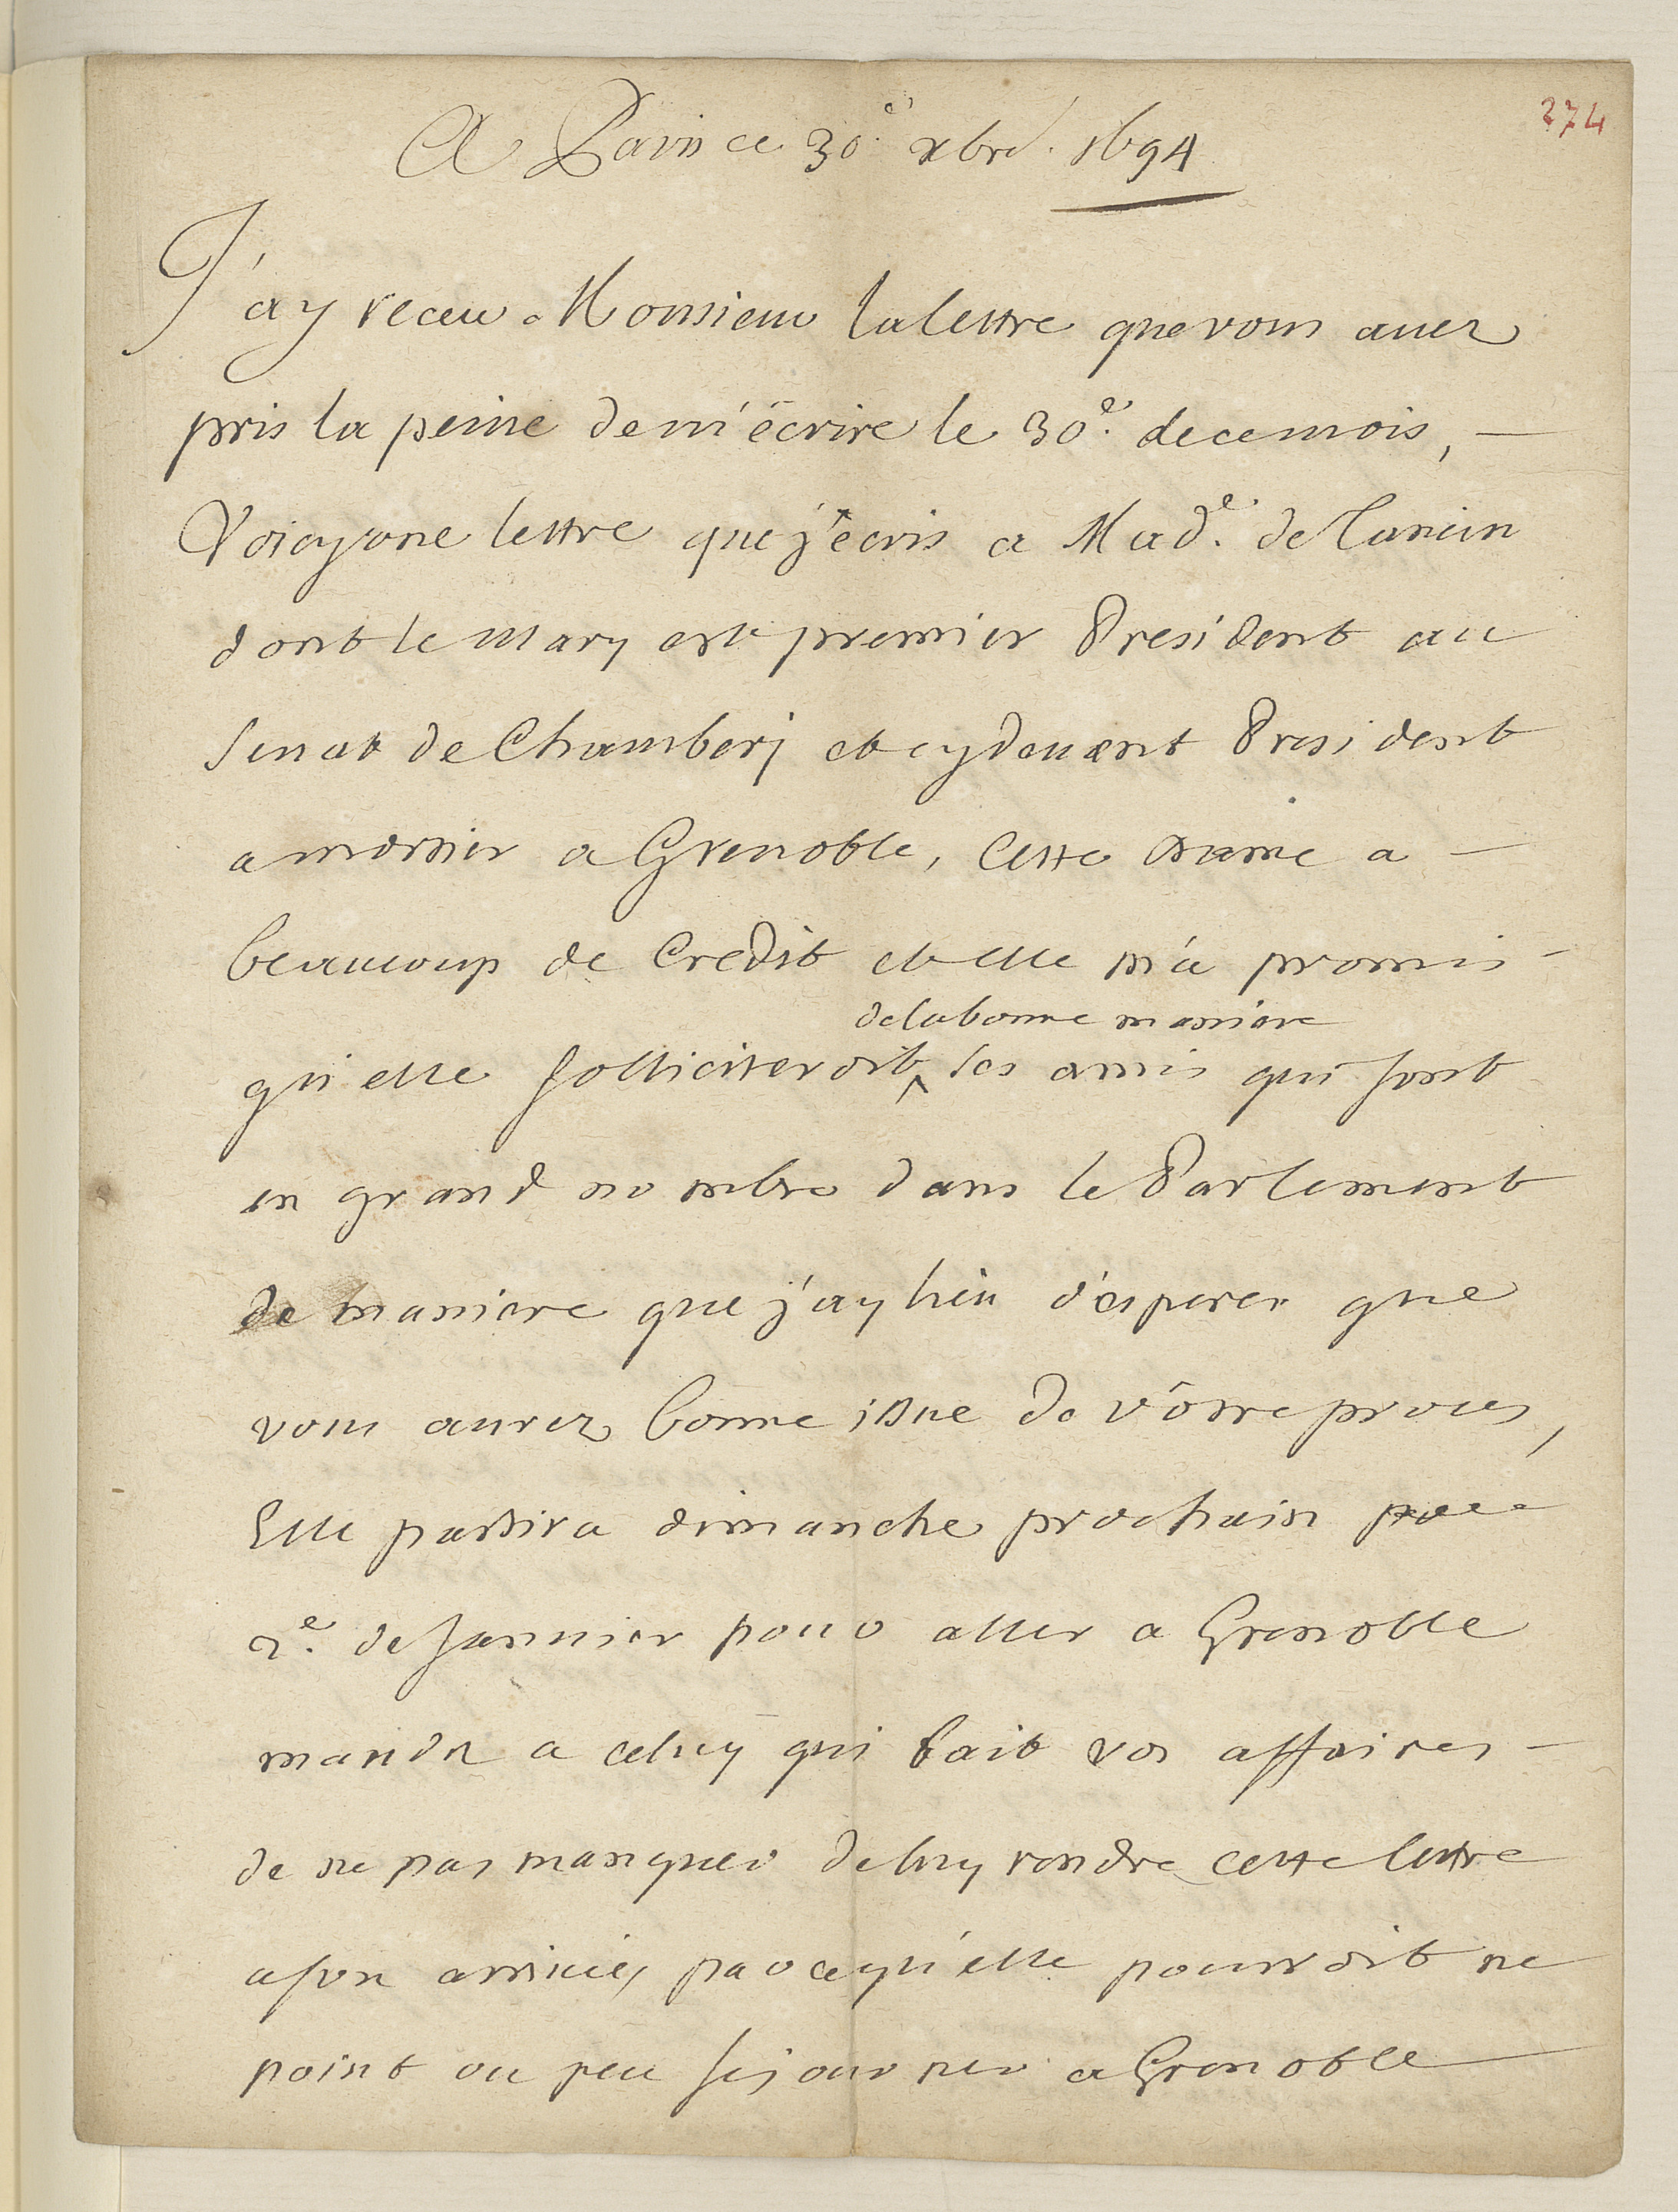 274
A Paris ce 30.e xbre. 1694
J'ay receu Monsieur la lettre que vous auez
pris la peine de m'écrire le 30.e de ce mois,
Voicy une lettre que j'écris a Mad.e de Tancin
dont le mary est premier President au
Senat de Chamberj et cy deuant President
a mortier a Grenoble, Cette Dame a
beaucoup de Credit et elle m'a promis
de la bonne maniere
qu'elle solliciteroit ses amis qui sont
en grand nombre dans le Parlement
de maniere que j'ay lieu d'esperer que
vous aurez bonne issue de vôtre proces,
Elle partira dimanche prochain
2.e de Januier pour aller a Grenoble
mandez a celuy qui fait vos affaires
de ne pas manquer de luy rendre cette lettre
a son arriuée, parce qu'elle pourroit ne
point ou peu sejourner a Grenoble